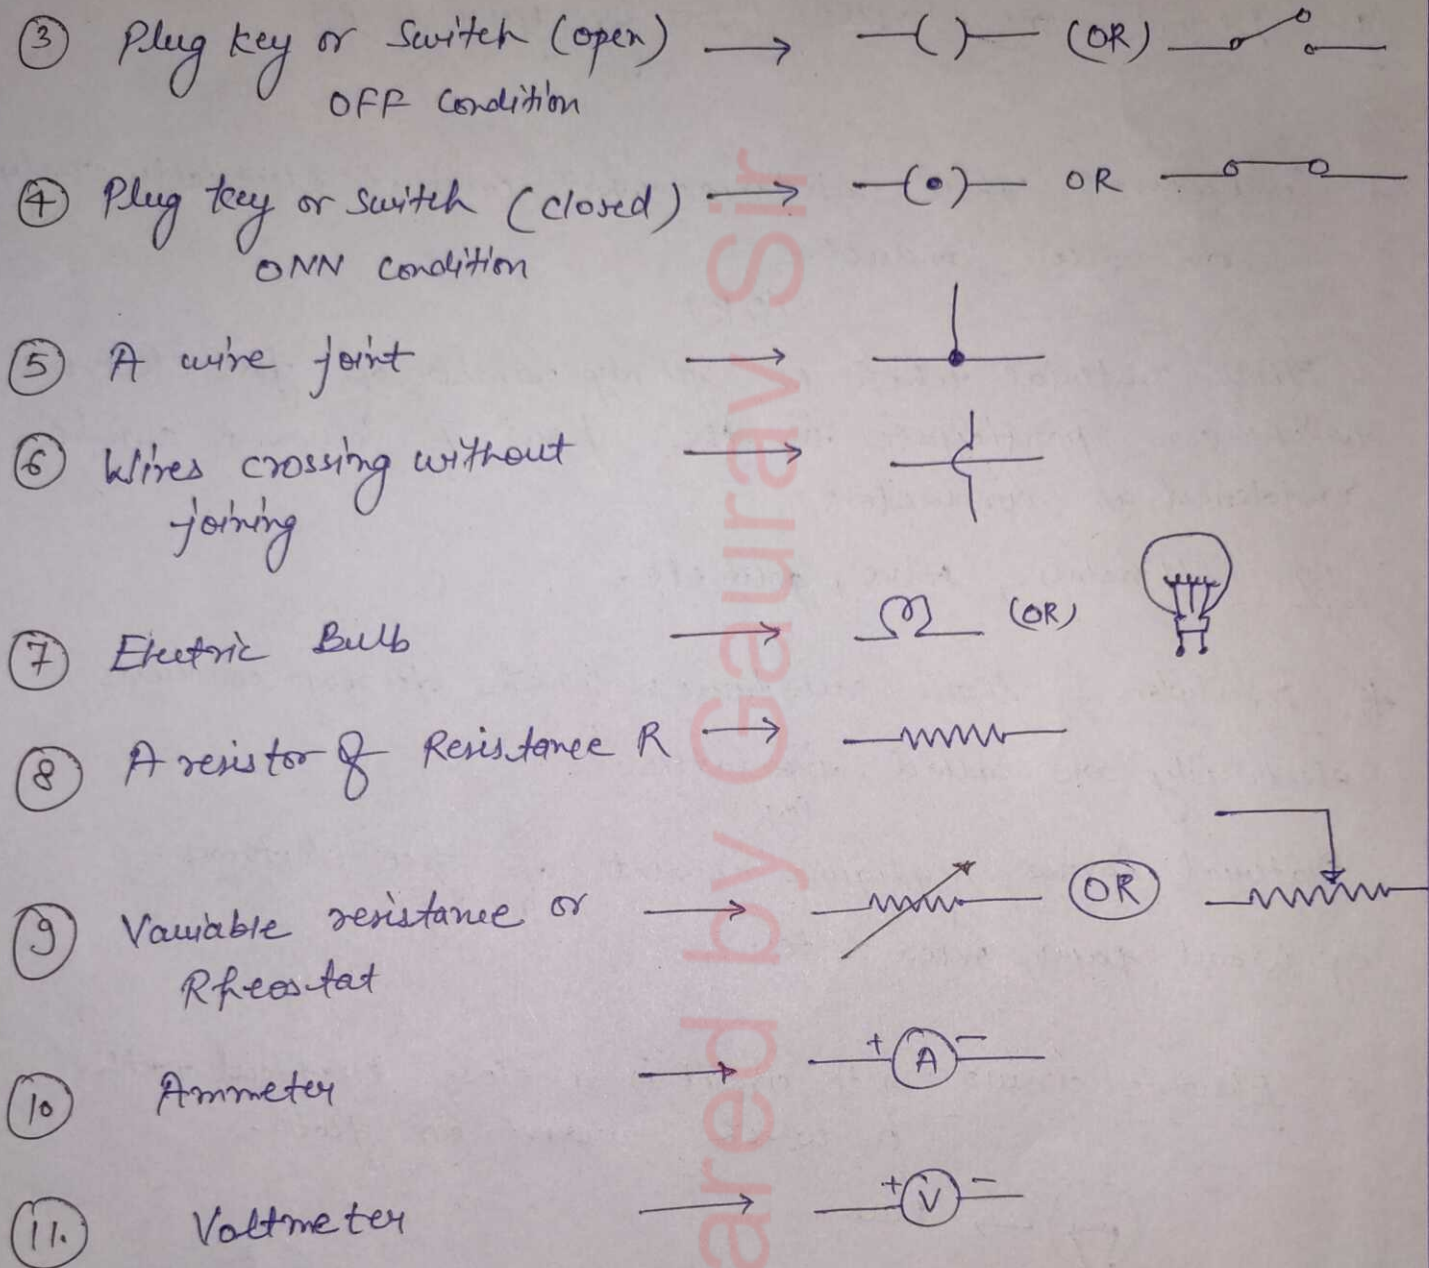 ③ Plug key or Switch (open) → —( )— (OR)
OFF Condition
④ Plug key or switch (closed) → —(•)— OR
ONN Condition
⑤ A wire joint →
⑥ Wires crossing without →
joining
⑦ Electric Bulb → (OR)
⑧ A resistor of Resistance R →
⑨ Variable resistance or → OR
Rheostat
⑩ Ammeter → + A −
⑪. Voltmeter → + V −
ared by Gaurav Sir